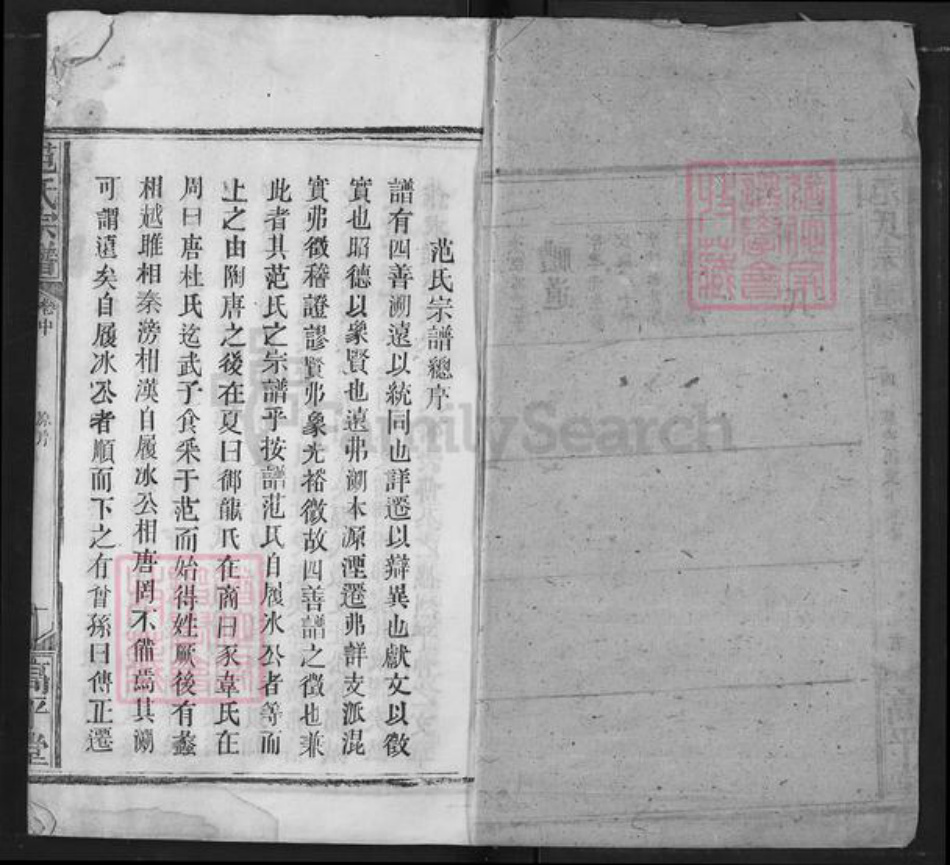 范氏宗譜總序
譜有四善溯遠以統同也詳遷以辯異也獻文以徵
實也昭德以象賢也遠弗溯本源湮遷弗詳支派混
實弗徵稽證謬賢弗象光裕微故四善譜之徵也兼
此者其范氏之宗譜乎按譜范氏自履氷公者等而
上之由陶唐之後在夏曰御龍氏在商曰豕韋氏在
周曰唐杜氏迄武子食采于范而始得姓厥後有蠡
相越雎相秦滂相漢自履冰公相唐罔不備焉其溯
可謂遠矣自履冰公者順而下之有曾孫曰傳正遷
范氏宗譜
卷中
高平堂
FamilySearch